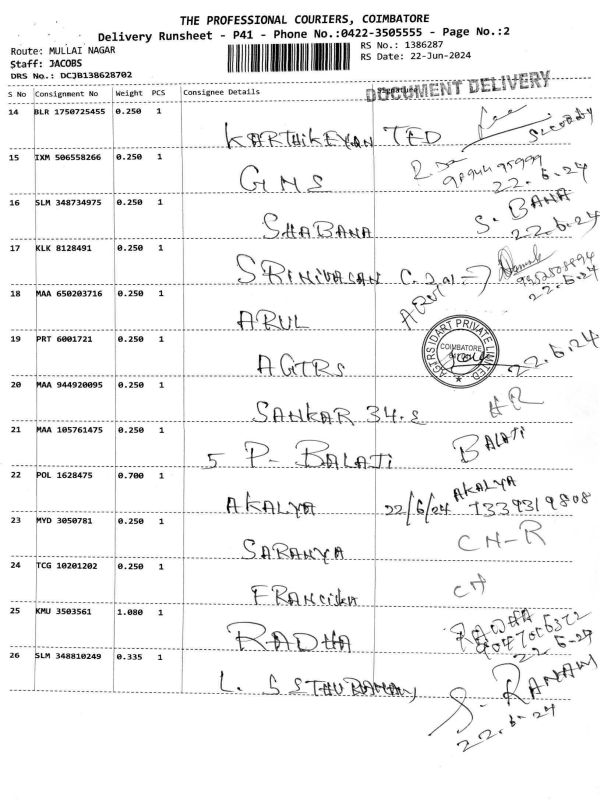 THE PROFESSIONAL COURIERS, COIMBATORE
Delivery Runsheet - P41 - Phone No.:0422-3505555 - Page No.:2
Route: MULLAI NAGAR
RS No.: 1386287
Staff: JACOBS
RS Date: 22-Jun-2024
DRS No.: DCJB138628702
DOCUMENT DELIVERY
S No Consignment No Weight PCS Consignee Details Signature
14 BLR 1750725455 0.250 1
KARTHIKEYAN TED
15 IXM 506558266 0.250 1
GMS
22.6.24
16 SLM 348734975 0.250 1
SHABANA S. BANA
22.6.24
17 KLK 8128491 0.250 1
SRINIVASAN
22.6.24
18 MAA 650203716 0.250 1
ARUL
19 PRT 6001721 0.250 1
AGTRS
AGTRS IDART PRIVATE LIMITED
COIMBATORE
22.6.24
20 MAA 944920095 0.250 1
SANKAR 34.
21 MAA 105761475 0.250 1
5 P- BALAJI BALAJI
22 POL 1628475 0.700 1
AKALYA 22/6/24 AKALYA
7339319808
23 MYD 3050781 0.250 1
SARANYA CH-R
24 TCG 10201202 0.250 1
FRANCISKA CH
25 KMU 3503561 1.080 1
RADHA RADHA
22.6.24
26 SLM 348810249 0.335 1
L. S
22.6.24